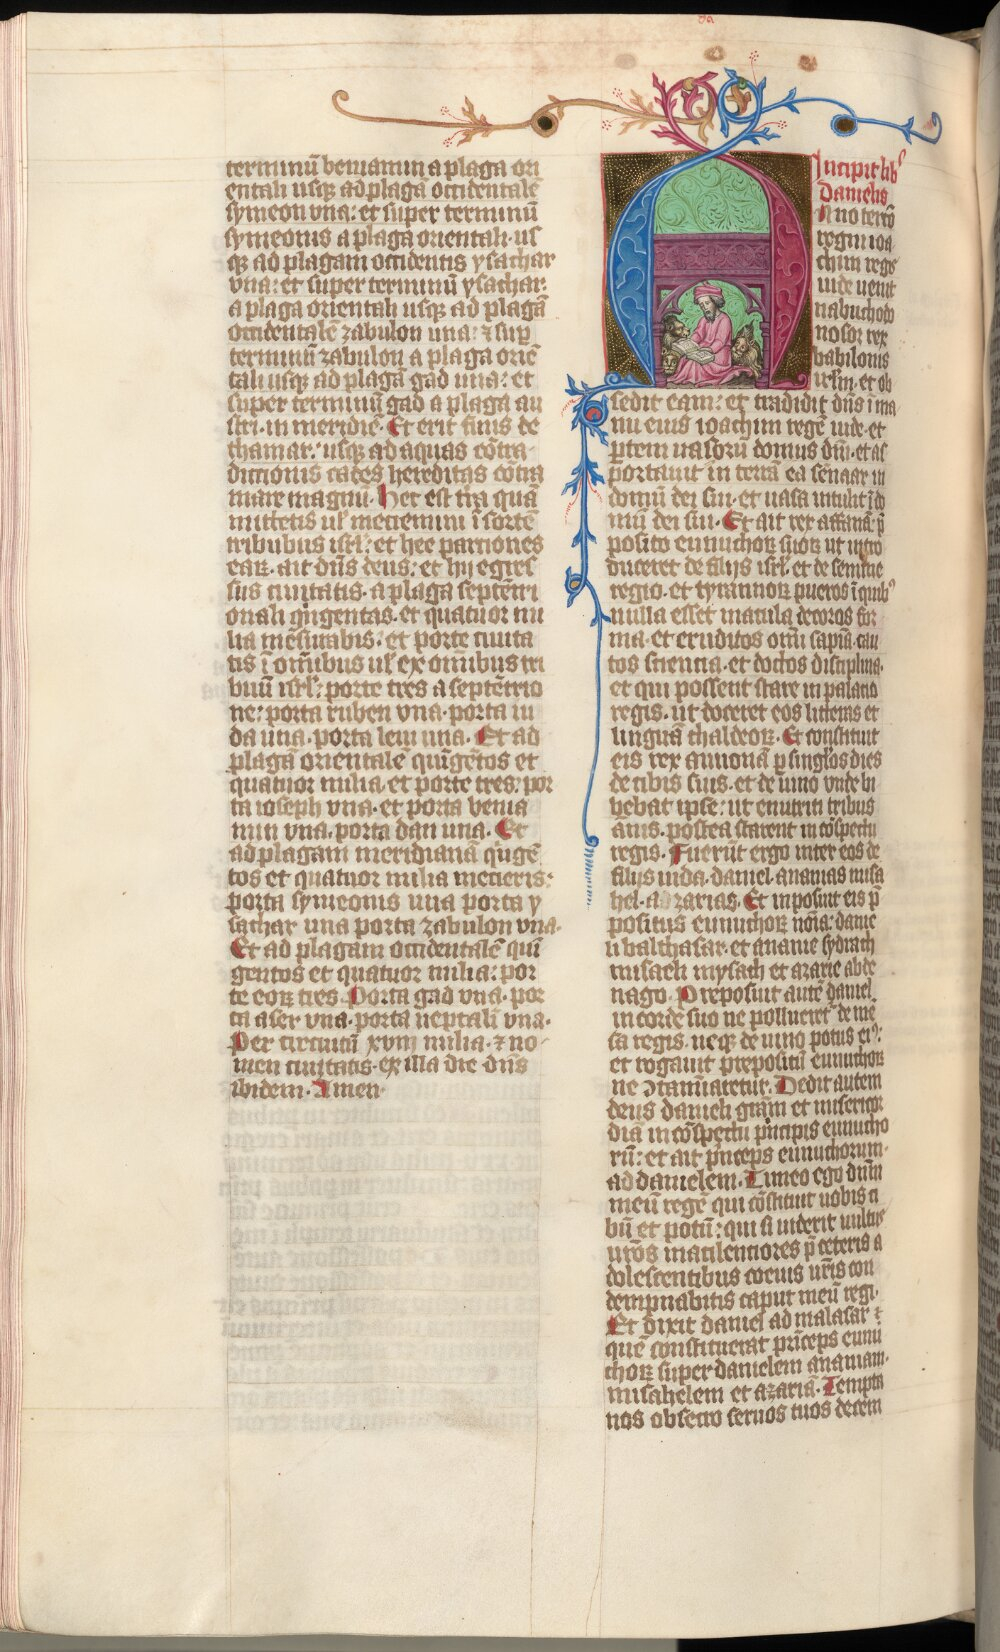 terminū beniamin a plaga ori
entali usq; ad plagā occidentalē
symeon vna: et super terminū
symeonis a plaga orientali us
q; ad plagam occidentis ysachar
vna: et super terminū ysachar.
a plaga orientali usq; ad plagā
occidentalē zabulon una: ⁊ sup̱
terminū zabulon a plaga oriē
tali usq; ad plagā gad una: et
super terminū gad a plaga au
stri in meridiē. Et erit finis de
thamar: usq; ad aquas cōtra
dictionis cades hereditas cōtra
mare magnū. Hec est t̄ra quā
mittetis ul̄ metiemini ī sortē
tribubus isrl̄: et hee partiones
earꝝ. ait dn̄s deus: et hij egres
sus ciuitatis. a plaga septētri
onali qingentas. et quatuor mi
lia mēsurabis: et porte ciuita
tis ī om̄ibus ul̄ ex om̄ibus tri
buū isrl̄: porte tres a septētrio
ne: porta ruben vna. porta iu
da una. porta leui una. Et ad
plagā orientalē quīgētos et
quatuor milia. et porte tres: por
ta ioseph vna. et porta benia
min vna. porta dan una. Et
ad plagam meridianā q̇ngē
tos et quatuor milia metieris:
porta symeonis una porta y
sachar una porta zabulon vna.
Et ad plagam occidentalē quī
gentos et quatuor milia: por
te eorꝝ tres Porta gad vna. por
ta aser vna. porta neptali vna.
Per circuitū xviij milia. ⁊ no
men ciuitatis. ex illa die dn̄s
ibidem. Amen.
Incipit lib᷒
Danielis
Anno tercō
regni ioa
chim regis
iude uenit
nabuchodo
nosor rex
babilonis
irl̄m. et ob
sedit eam: et tradidit dn̄s ī ma
nu eius ioachim regē iude. et
ꝑtem uasorū domus dn̄i. et as
portauit in terrā ea sēnaar in
domū dei sui. et uasa intulit ī do
mū dei sui. Et ait rex asfanaꝫ p̄
posito eunuchorꝝ suorꝝ ut intro
duceret de filijs isrl̄. et de semine
regio. et tyrannorꝝ pueros ī quib᷒
nulla esset macula decoros for
ma. et eruditos om̄i sapīa. cau
tos sciencia. et doctos disciplina.
et qui possent stare in palacio
regis. ut doceret eos litteras et
linguā chaldeorꝝ. Et constituit
eis rex annonā p singlos dies
de cibis suis. et de uino vnde bi
bebat ipse: ut enutriti tribus
ānis. postea starent in cōspectu
regis. Fuerūt ergo inter eos de
filijs iuda. daniel. ananias misa
hel. azarias. Et inposuit eis p̄
positus eunuchorꝝ noīa: danie
li balthasar. et ananie sydrach
misaeli mysach et azarie abde
nago. Preposuit autē daniel
in corde suo ne pollueret de mē
sa regis. neq; de uino potus ei᷒:
et rogauit prepositū eunuchorꝝ
ne ɔtaminaretur. Dedit autem
deus danieli grām et misericor
diā in cōspectu principis eunucho
rū: et ait p̄nceps eunuchorum.
ad danielem. Timeo ego dn̄m
meū regē qui cōstituit uobis ci
bū et potū: qui si uiderit uultus
ur̄os macilentiores p̄ ceteris a
dolescentibus coeuis ur̄is con
dempnabitis caput meū regi.
Et dixit daniel ad malasar ⁊
quē constituerat prīceps eunu
chorꝝ super danielem ananiam.
misahelem et azariā. Tempta
nos obsecro seruos tuos decem